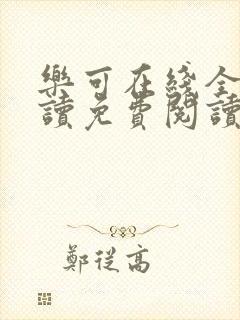 樂可在綫全
讀免費閱讀
鄭從高